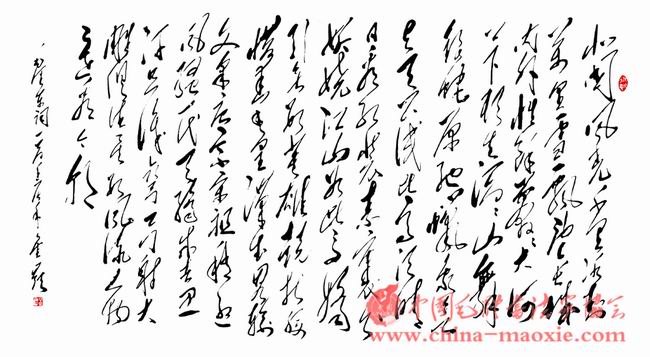 北国风光千里冰封
万里雪飘望长城
内外惟余莽莽大河
上下顿失滔滔山舞
银蛇原驰蜡象欲
与天公试比高须晴
日看红装素裹分外
妖娆江山如此多娇
引无数英雄竞折腰
惜秦皇汉武略输
文采唐宗宋祖稍逊
风骚一代天骄成吉思
汗只识弯弓射大
雕俱往矣数风流人物
还看今朝
毛泽东词
中国毛体书法家协会
www.china-maoxie.com